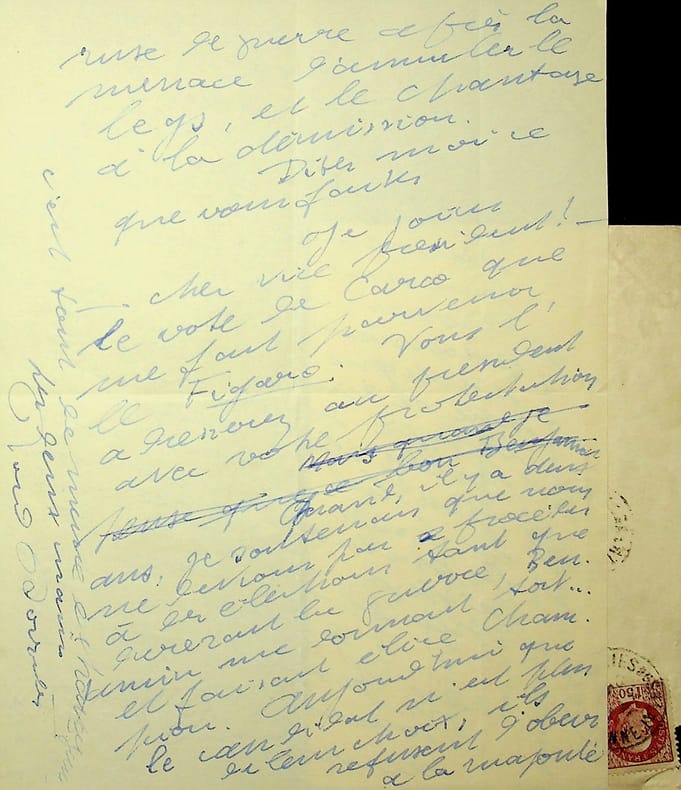 ruse de guerre après la
menace d'annuler le
legs, et le chantage
à la démission.
Dites moi ce
que vous faites
Je joins
cher vice président! —
le vote de Carco que
me fait parvenir
le Figaro. Vous l'
adresserez au président
avec votre protestation
mais quand je
pense que ce bon Benjamin
Quand, il y a deux
ans, je soutenais que nous
ne devions pas procéder
à des élections tant que
durerait la guerre, Ben-
jamin me donnait tort...
et faisait élire Cham-
pion. Aujourd'hui que
le candidat n'est plus
de leur choix, ils
refusent d'obéir
à la majorité
c'est tout de même
les deux mains
1F50